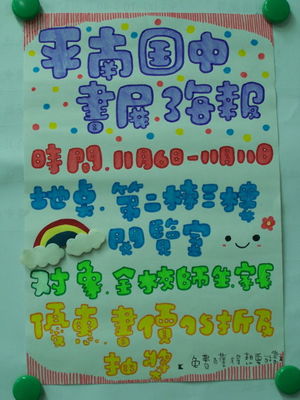 平南国中
書展海報
時間.11月6日-11月11日
地点.第二棟三樓
閱覽室
対象.全校師生.家長
優惠.書價75折及
抽獎
免費獲得想要